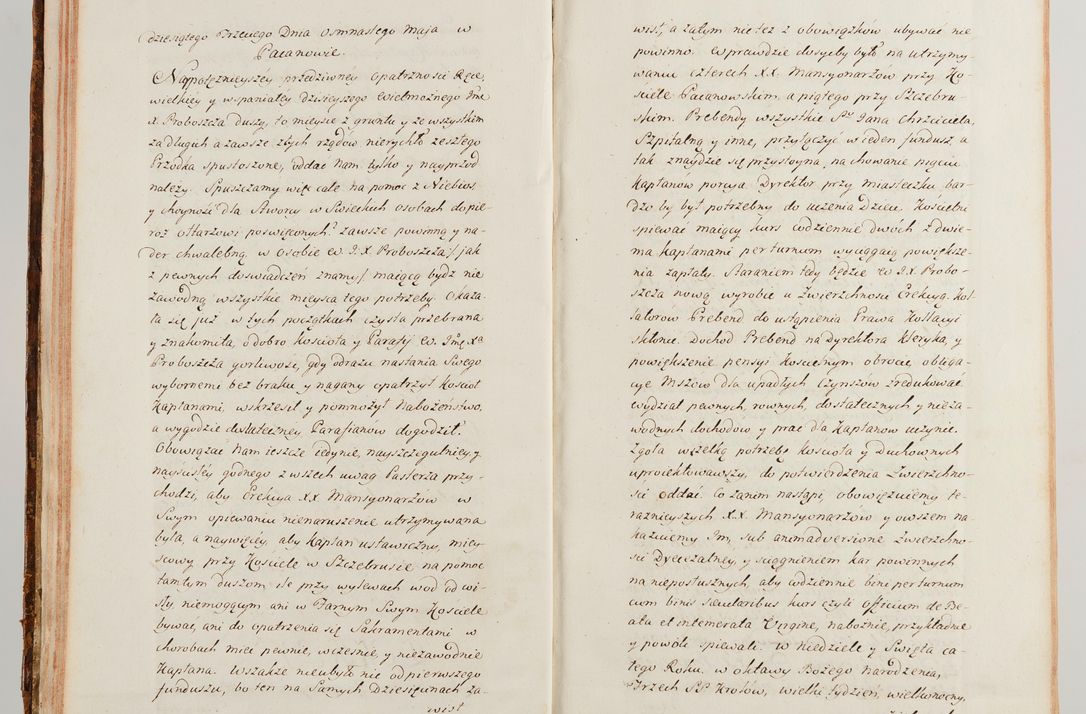 dziesiątego Trzeciego Dnia osmnastego Maja w
Pacanowie.
Naypotęznieyszey przedziwney Opatrzności Ręce,
wielkiey y wspaniałey dzisieyszego Wielmożnego Jmci
X. Proboszcza duszy, to mieysce z gruntu y ze wszystkim
za długich a zawsze złych rządow nierychło zeszłego
Przodka spustoszone, oddać Nam tylko y nayprzod
należy. Spuszczamy więc całe na pomoc z Niebios,
y choyność dla Stworcy w Swieckich osobach dopie-
roż ołtarzowi poswięconych zawsze powinną y na-
der chwalebną w osobie W. J. X. Proboszcza / jak
z pewnych doswiadczeń znamy / maiącą bydz nie
zawodną wszystkie mieysca tego potrzeby. Okaza-
ła się już w tych początkach czysta przebrana
y znakomita, o dobro Kościoła y Parafij W. Jmc Xa
Proboszcza gorliwość, gdy odrazu nastania Swego
wybornemi bez braku y nagany opatrzył Kościoł
Kapłanami, wskrzesił y pomnożył Nabożeństwo,
a wygodzie dostateczney Parafianow dogodził.
Obowiązać Nam ieszcze iedynie, nayszczegulniey y
nayscisley godnego z wszech uwag Pasterza przy-
chodzi, aby Erekcya XX. Mansyonarzów w
Swym opiewaniu nienaruszenie utrzymywana
była, a naywięcey, aby Kapłan ustawiczny, miey-
scowy przy Kościele w Szczebrusie na pomoc
tamtym duszom, ile przy wylewach wod od Wi-
sły, niemogącym ani w Farnym Swym Kościele
bywać, ani do opatrzenia się Sakramentami w
chorobach mieć pewnie, wczesnie y niezawodnie
Kapłana. Wszakże nieubyło nic od pierwszego
funduszu, bo ten na Samych Dziesięcinach za-
wisł
wisł, a zatym nic też z obowiązków ubywać nie
powinno. Wprawdzie dosyćby było na utrzymy-
waniu czterech XX. Mansyonarzów przy Ko-
ściele Pacanowskim, a piątego przy Szczebru-
skim. Prebendy wszystkie S. Jana Chrzciciela,
Szpitalną y inne, przyłączyć w ieden fundusz, a
tak znaydzie się przystoyna, na chowanie pięciu
Kapłanów porcya. Dyrektor przy miasteczku bar-
dzo by był potrzebny do uczenia Dzieci. Kościelni
spiewać maiący kurs codziennie dwóch z dwie-
ma kapłanami per turnum wyciągaią powiększe-
nia zapłaty. Staraniem tedy będzie W. J. X. Probo-
szcza nową wyrobić u Zwierzchności Erekcyą. Kol-
latorow Prebend do ustąpienia Prawa Kollacyi
skłonić. Dochod Prebend na Dyrektora Kleryka, y
powiększenie pensyi Kościelnym obrocić obliga-
cye Mszow dla upadłych Czynszów zredukować
wydział pewnych, rownych, dostatecznych y nieza-
wodnych dochodow y prac dla Kapłanow uczynić.
Zgoła wszelką potrzebę Kościoła y Duchownych
uproiektowawszy, do potwierdzenia Zwierzchno-
ści oddać. Co zanim nastąpi, obowiązuiemy te-
raznieyszych XX. Mansyonarzów y owszem na-
kazuiemy Im, sub animadversione Zwierzchno-
ści Dyecezalney, y sciągnieniem kar powinnych
na nieposłusznych, aby codziennie bini per turnum
cum binis secularibus kurs czyli officium de Be-
ata et intemerata Virgine, nabożnie, przykładnie
y powoli spiewali. W Niedziele y Swięta ca-
łego Roku, w oktawy Bożego Narodzenia,
Trzech SS. Krolow, wielki tydzień, wielkonocny,